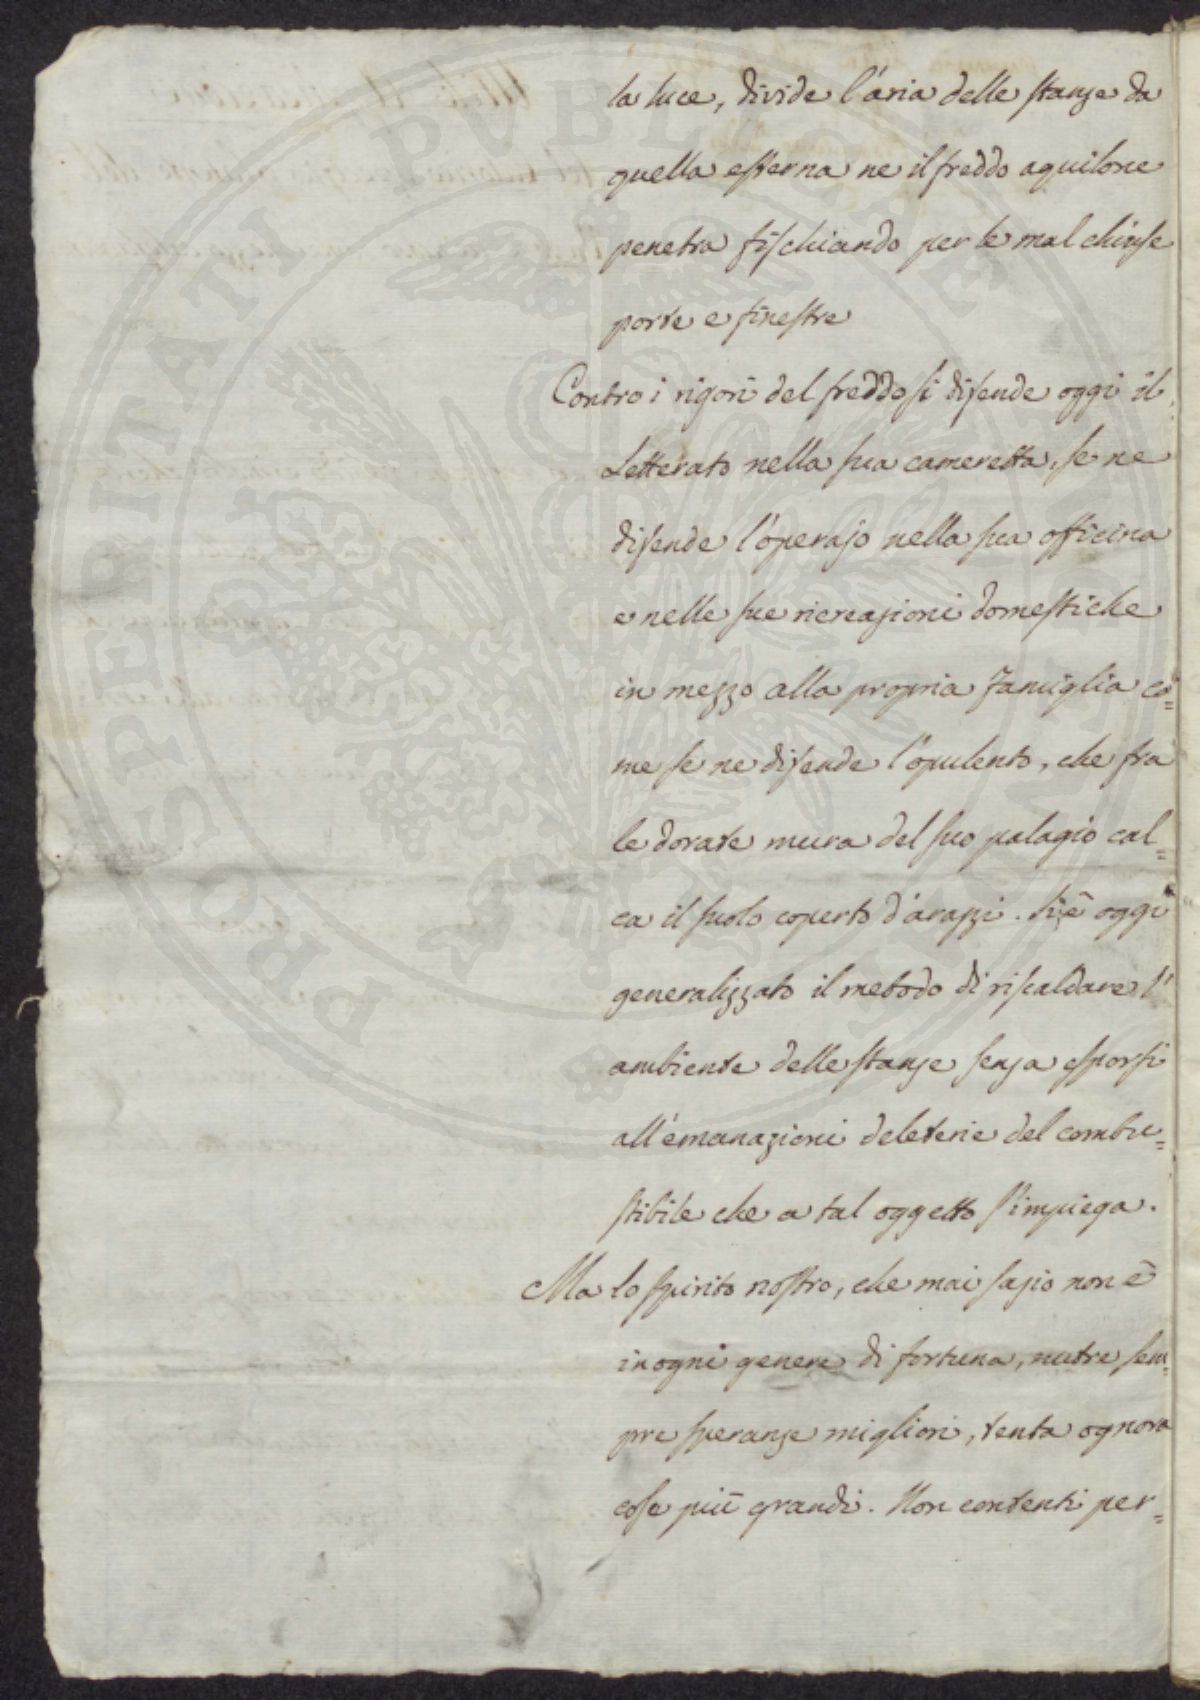 la luce, divide l'aria delle stanze da
quella esterna ne il freddo aquilone
penetra fischiando per le mal chiuse
porte e finestre
Contro i rigori del freddo si difende oggi il
Letterato nella sua cameretta, se ne
difende l'operajo nella sua officina
e nelle sue ricreazioni domestiche
in mezzo alla propria famiglia co=
me se ne difende l'opulento, che fra
le dorate mura del suo palagio cal=
ca il suolo coperto d'arazzi. Si è oggi
generalizzato il metodo di riscaldare l'
ambiente delle stanze senza esporsi
all'emanazioni deleterie del combu=
stibile che a tal oggetto s'impiega.
Ma lo spirito nostro, che mai sazio non è
in ogni genere di fortuna, nutre sem=
pre speranze migliori, tenta ognora
cose più grandi. Non contenti per=
PROSPERITATI PUBLICAE